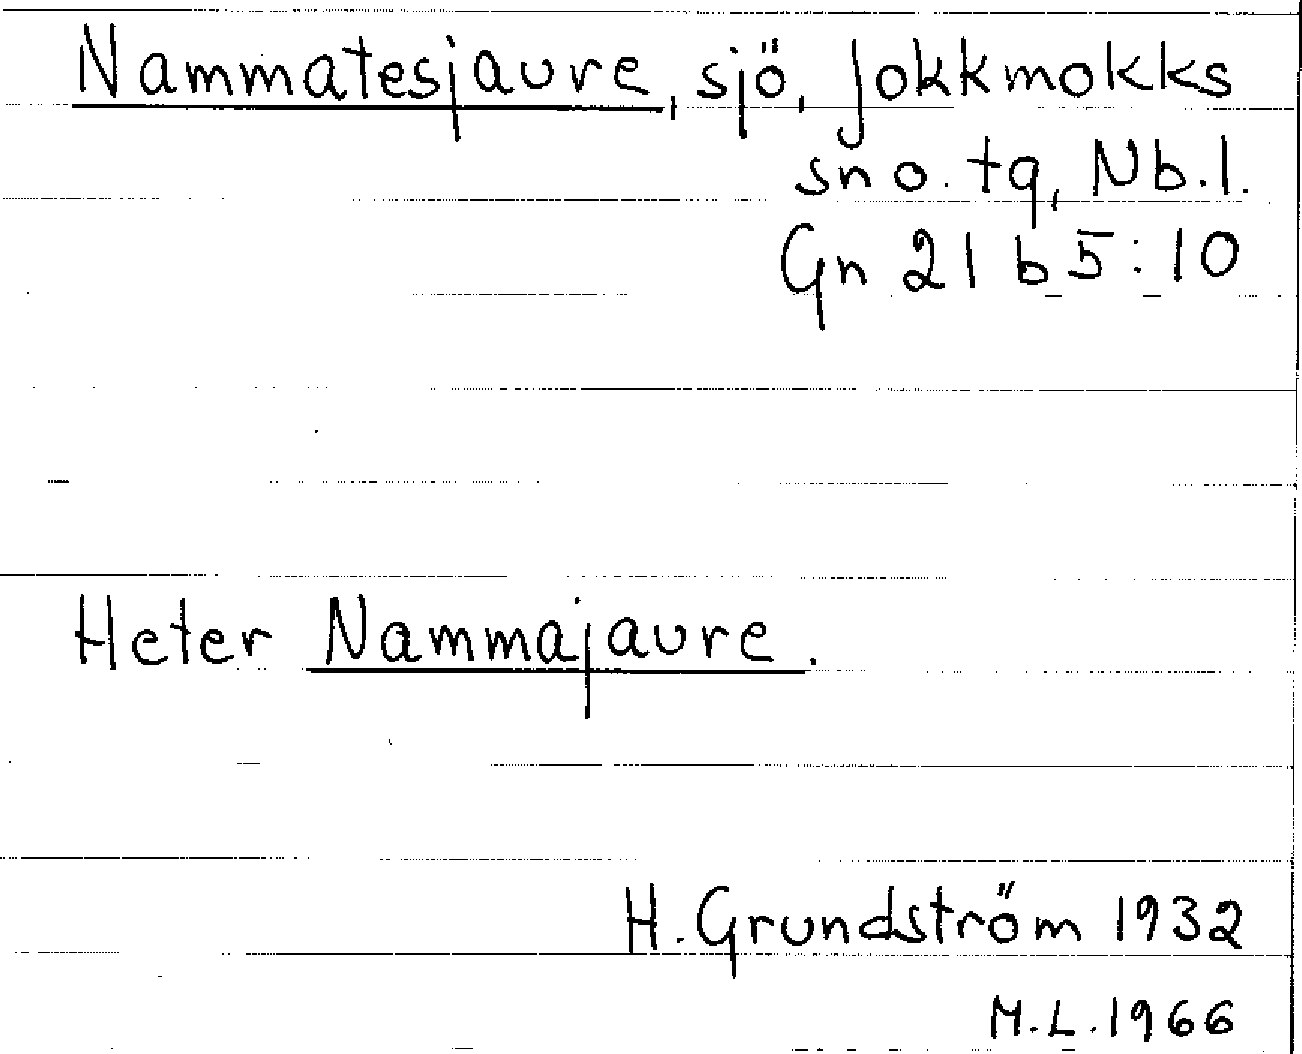 Nammatesjaure, sjö, Jokkmokks
sn o. tg, Nb.l.
Gn 21 b 5:10
Heter Nammajaure.
H. Grundström 1932
M.L. 1966